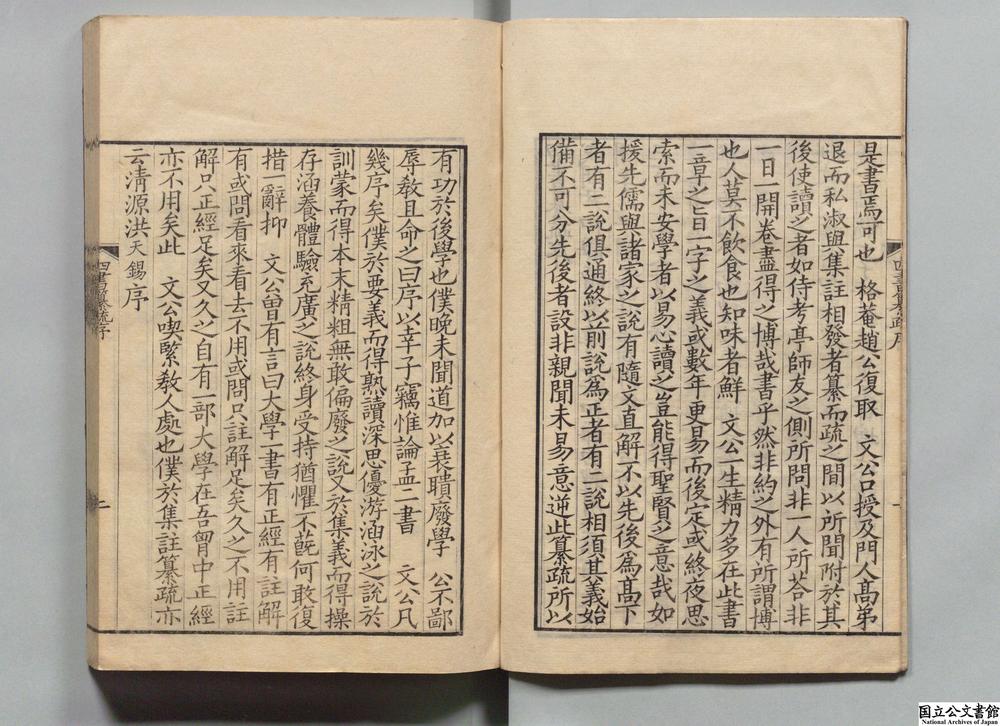 是書焉可也　格菴趙公復取　文公口授及門人髙弟
退而私淑與集註相發者纂而疏之間以所聞附於其
後使讀之者如侍考亭師友之側所問非一人所荅非
一日一開卷盡得之博哉書乎然非約之外有所謂博
也人莫不飲食也知味者鮮　文公一生精力多在此書
一章之旨一字之義或數年更易而後定或終夜思
索而未安學者以易心讀之豈能得聖賢之意哉如
援先儒與諸家之說有隨文直解不以先後為髙下
者有二說俱通終以前說為正者有二說相須其義始
備不可分先後者設非親聞未易意逆此纂疏所以
四書纂疏序
一
有功於後學也僕晚未聞道加以衰聵廢學　公不鄙
辱教且命之曰序以幸子竊惟論孟二書　文公凡
幾序矣僕於要義而得熟讀深思優游涵泳之說於
訓蒙而得本末精粗無敢偏廢之說又於集義而得操
存涵養體驗充廣之說終身受持猶懼不旣何敢復
措一辭抑　文公曾有言曰大學一書有正經有註解
有或問看來看去不用或問只註解足矣久之不用註
解只正經足矣又久之自有一部大學在吾胷中正經
亦不用矣此　文公喫緊教人處也僕於集註纂疏亦
云清源洪天錫序
四書纂疏序
二
国立公文書館
National Archives of Japan